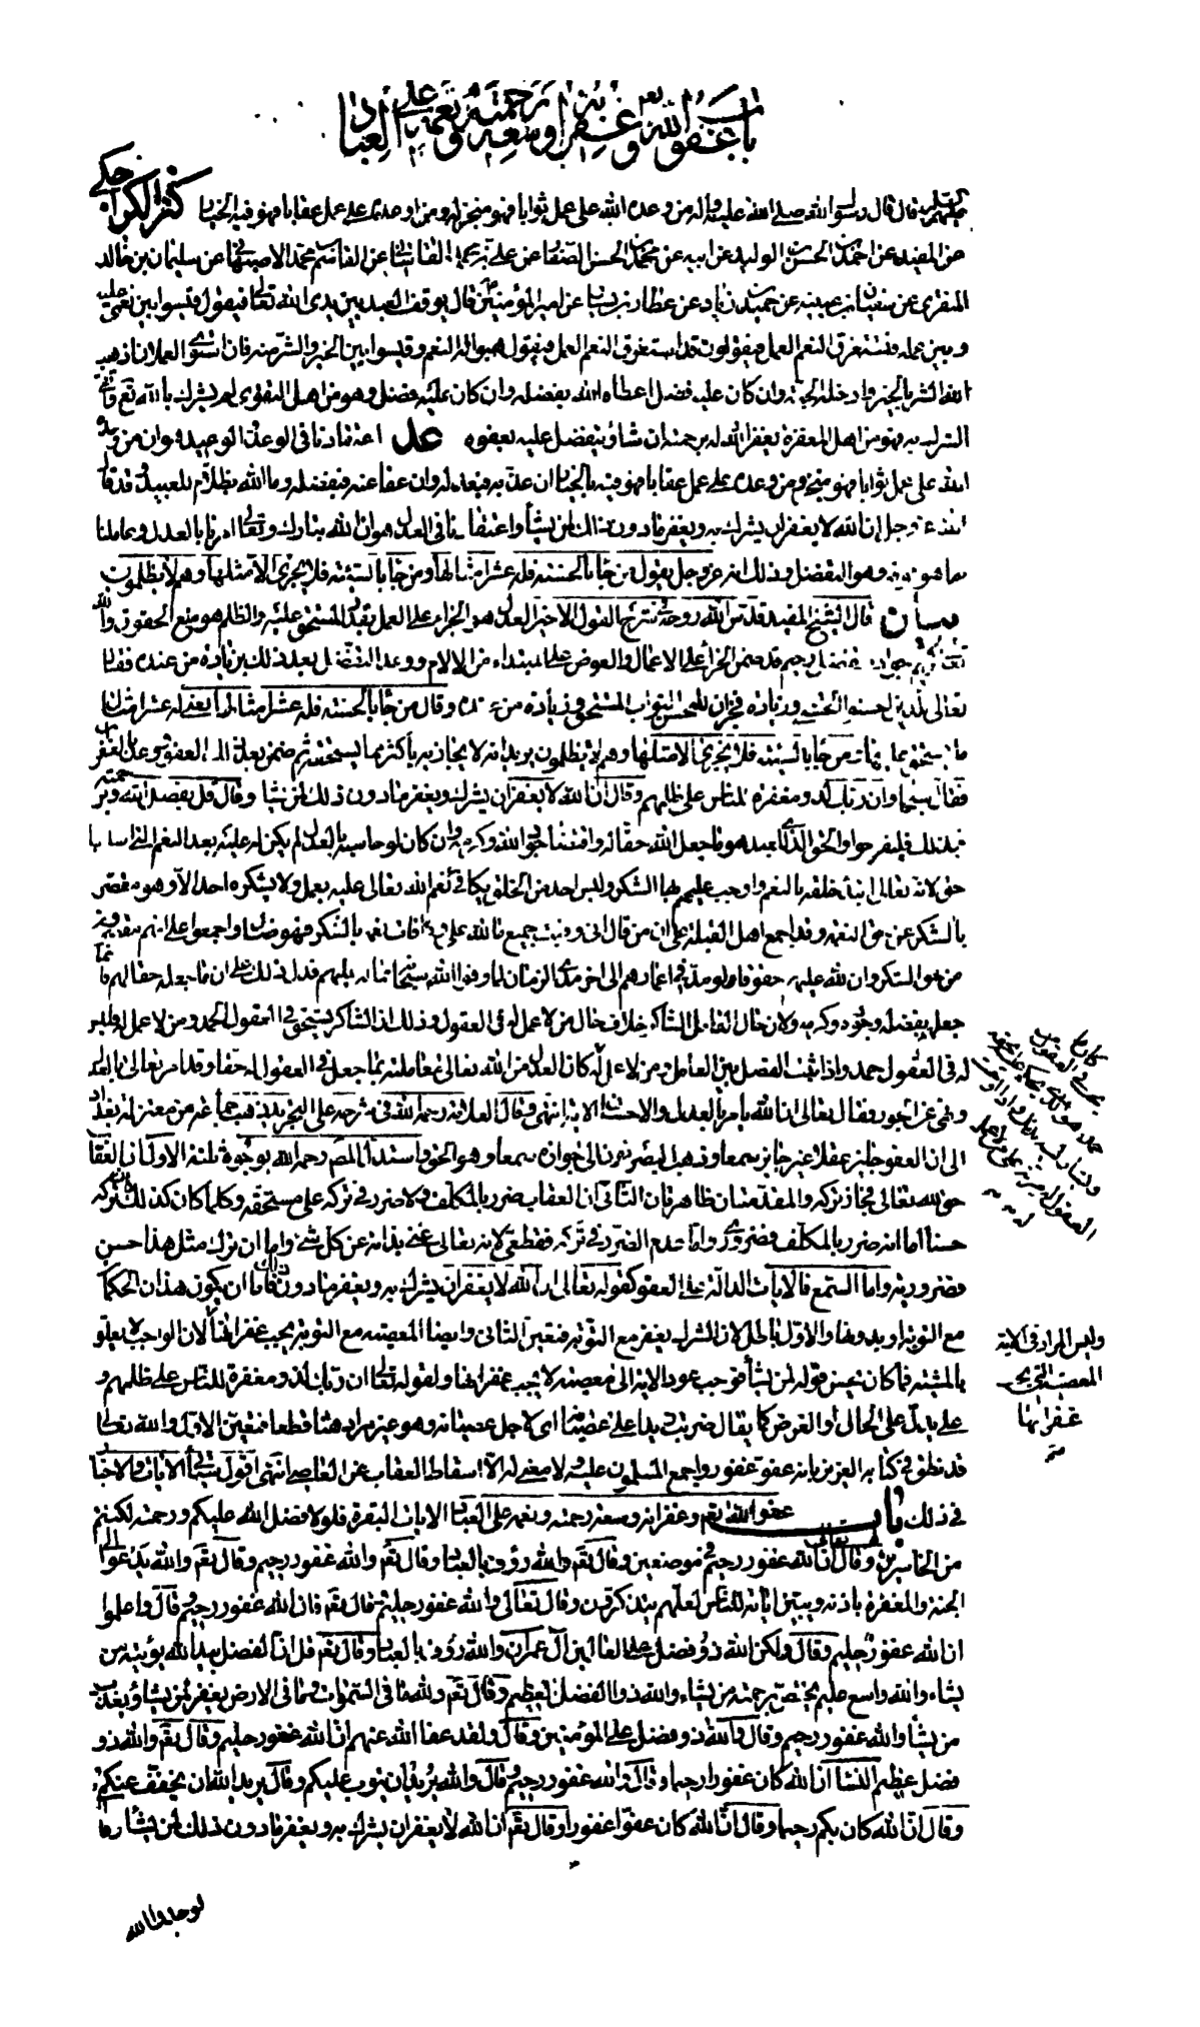 باب عفو الله تعالى وغفرانه وسعة رحمته ونعمه على العباد
كنز الكراجكي
عليهم قال قال رسول الله صلى الله عليه وآله من وعده الله على عمل ثوابا فهو منجز له ومن اوعده على عمل عقابا فهو فيه بالخيار
عن المفيد عن احمد بن الحسن بن الوليد عن ابيه عن محمد بن الحسن الصفار عن على بن محمد القاساني عن القاسم بن محمد الاصبهاني عن سليمان بن خالد
المنقرى عن سفيان بن عيينة عن حميد بن زياد عن عطاء بن يسار عن امير المؤمنين قال يوقف العبد بين يدى الله تعالى فيقول قيسوا بين نعمى عليه
وبين عمله فتستغرق النعم العمل فيقولون قد استغرق النعم العمل فيقول هبوا له النعم وقيسوا بين الخير والشر منه فان استوى العملان اذهب
الله الشر بالخير وادخله الجنة وان كان عليه فضل اعطاه الله بفضله وان كان عليه فضل وهو من اهل التقوى لم يشرك بالله تع واتقى
الشرك به فهو من اهل المغفرة يغفر الله له برحمته ان شاء ويتفضل عليه بعفوه عد اعتقادنا فى الوعد والوعيد هو ان من وعده
الله على عمل ثوابا فهو منجزه ومن وعده على عمل عقابا فهو فيه بالخيار ان عذبه فبعدله وان عفا عنه فبفضله وما الله بظلام للعبيد وقد قال
الله عز وجل ان الله لا يغفر ان يشرك به ويغفر ما دون ذلك لمن يشاء واعتقادنا فى العدل هو ان الله تبارك وتعالى امرنا بالعدل وعاملنا
بما هو فوقه وهو التفضل وذلك انه عز وجل يقول من جاء بالحسنة فله عشر امثالها ومن جاء بالسيئة فلا يجزى الا مثلها وهم لا يظلمون
بيان قال الشيخ المفيد قدس الله روحه فى شرح القول الاخير العدل هو الجزاء على العمل بقدر المستحق عليه والظلم هو منع الحقوق والله
تعالى كريم جواد متفضل رحيم قد ضمن الجزاء على الاعمال والعوض على المبتدء من الالام ووعد التفضل بعد ذلك بزيادة من عنده فقال
تعالى للذين احسنوا الحسنى وزيادة فخبر ان للمحسن الثواب المستحق وزيادة من عنده وقال من جاء بالحسنة فله عشر امثالها يعنى له عشر امثال
ما يستحق عليها ومن جاء بالسيئة فلا يجزى الا مثلها وهم لا يظلمون يريد انه لا يجازيه باكثر مما يستحقه ثم ضمن بعد ذلك العفو ووعد بالغفران
فقال سبحانه وان ربك لذو مغفرة للناس على ظلمهم وقال ان الله لا يغفر ان يشرك به ويغفر ما دون ذلك لمن يشاء وقال قل بفضل الله وبرحمته
فبذلك فليفرحوا والحق الذى للعبد هو ما جعل الله حقا له واقتضاه جود الله وكرمه وان كان لو حاسبه بالعدل لم يكن له عليه بعد النعم التى اسلفها
حق لانه تعالى ابتدأ خلقه بالنعم واوجب عليهم بها الشكر وليس احد من الخلق يكافى نعم الله تعالى عليه بعمل ولا يشكره احد الا وهو مقصر
بالشكر عن حق النعمة وقد اجمع اهل القبلة على ان من قال انى وفيت جميع ما لله على وكافات نعمه بالشكر فهو ضال واجمعوا على انهم مقصرون
عن حق الشكر وان لله عليهم حقوقا لو مد فى اعمارهم الى اخر مدى الزمان لما وفوا الله سبحانه بما له عليهم فدل ذلك على ان ما جعله حقا لهم فانما
جعله بفضله وجوده وكرمه ولان حال العامل الشاكر خلاف حال من لا عمل له فى العقول وذلك ان الشاكر يستحق فى العقول الحمد ومن لا عمل له فليس
له فى العقول حمد واذا ثبت الفضل بين العامل ومن لا عمل له كان العدل من الله تعالى معاملته بما جعل فى العقول له حقا وقد امر تعالى بالعدل
ونهى عن الجور فقال تعالى ان الله يامر بالعدل والاحسان الاية انتهى وقال العلامة رحمه الله فى شرحه على التجريد ذهب جماعة من معتزلة بغداد
الى ان العفو جايز عقلا غير جايز سمعا وذهب البصريون الى جوازه سمعا وهو الحق واستدل المص رحمه الله بوجوه ثلثة الاول ان العقاب
حق لله تعالى فجاز تركه والمقدمتان ظاهرتان الثانى ان العقاب ضرر بالمكلف ولا ضرر فى تركه على مستحقه وكلما كان كذلك كان تركه
حسنا اما انه ضرر بالمكلف فضرورى واما عدم الضرر فى تركه فقطعى لانه تعالى غنى بذاته عن كل شىء واما ان ترك مثل هذا حسن
فضرورية واما السمع فالايات الدالة على العفو كقوله تعالى ان الله لا يغفر ان يشرك به ويغفر ما دون ذلك فاما ان يكون هذان الحكمان
مع التوبة او بدونها والاول باطل لان الشرك يغفر مع التوبة فتعين الثانى وايضا المعصية مع التوبة يجب غفرانها لان الواجب لا يعلق
بالمشية فما كان يحسن قوله لمن يشاء فوجب عود الاية الى معصية لا يجب غفرانها ولقوله تعالى ان ربك لذو مغفرة للناس على ظلمهم و
على يدل على الحال او الغرض كما يقال ضربت زيدا على عصيانه اى لاجل عصيانه وهو غير مراد هنا قطعا فتعين الاول والله تعالى
قد نطق فى كتابه العزيز بانه عفو غفور واجمع المسلمون عليه ولا معنى له الا اسقاط العقاب عن العاصى انتهى اقول سياتى الايات والاخبار
فى ذلك باب عفو الله تعالى وغفرانه وسعة رحمته ونعمه على العباد الايات البقرة فلولا فضل الله عليكم ورحمته لكنتم
من الخاسرين وقال تعالى ان الله غفور رحيم فى موضعين وقال تعم والله رؤف بالعباد وقال تعم والله غفور رحيم وقال تعم والله يدعوا الى
الجنة والمغفرة باذنه ويبين اياته للناس لعلهم يتذكرون وقال تعالى والله غفور حليم وقال تعم فان الله غفور رحيم وقال واعلموا
ان الله غفور حليم وقال ولكن الله ذو فضل على العالمين آل عمران والله رؤف بالعباد وقال تعم قل ان الفضل بيد الله يؤتيه من
يشاء والله واسع عليم يختص برحمته من يشاء والله ذوا الفضل العظيم وقال تعم ولله ما فى السموات وما فى الارض يغفر لمن يشاء ويعذب
من يشاء والله غفور رحيم وقال والله ذو فضل على المؤمنين وقال ولقد عفا الله عنهم ان الله غفور حليم وقال تعم والله ذو
فضل عظيم النساء ان الله كان غفورا رحيما وقال والله غفور رحيم وقال والله يريد ان يتوب عليكم وقال يريد الله ان يخفف عنكم
وقال ان الله كان بكم رحيما وقال ان الله كان عفوا غفورا وقال تعم ان الله لا يغفر ان يشرك به ويغفر ما دون ذلك لمن يشاء
وليس المراد فى الاية
المعصية التى يجب
غفرانها
لوجدوا الله